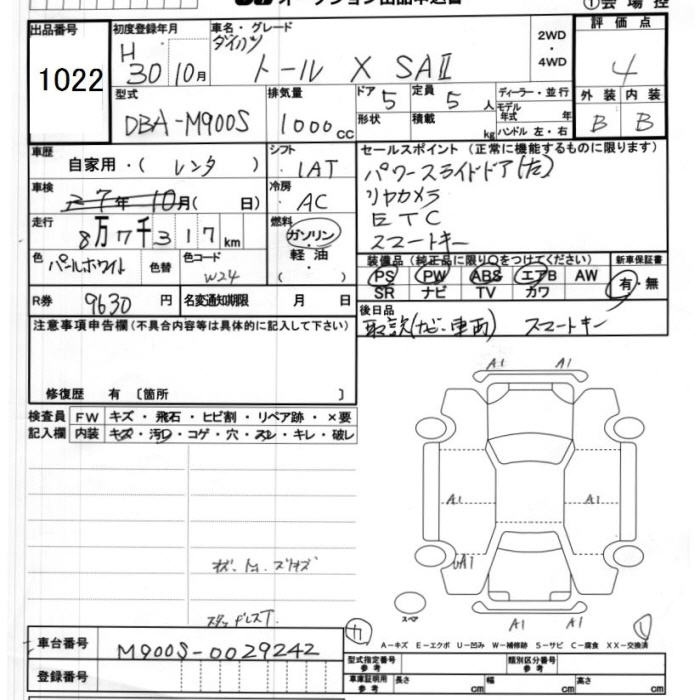 出品番号
1022
初度登録年月
H 30 10月
車名・グレード
ダイハツ
トール X SAⅡ
2WD
・
4WD
評価点
4
型式
DBA-M900S
排気量
1000cc
ドア
5
定員
5人
形状
積載
kg
ディーラー・並行
モデル年式 年
ハンドル 左・右
外装
内装
B
B
車歴
自家用・( レンタ )
シフト
IAT
車検
R7年10月( 日)
冷房
AC
走行
8万7千317km
燃料
ガソリン
・
軽油
・
( )
色
パールホワイト
色替
色コード
W24
R券
9630円
名変通知期限 月 日
セールスポイント (正常に機能するものに限ります)
パワースライドドア(左)
リヤカメラ
ETC
スマートキー
装備品(純正品に限り○をつけてください)
新車保証書
PS PW ABS エアB AW
有・無
SR ナビ TV カワ
後日品
取説(ナビ・車両) スマートキー
注意事項申告欄(不具合内容等は具体的に記入して下さい)
修復歴 有〔箇所 〕
検査員
記入欄
FW キズ・飛石・ヒビ割・リペア跡・×要
内装 キズ・汚れ・コゲ・穴・スレ・キレ・破レ
A1 A1
A1 A1
A1
A1 A1
スペア
A－キズ E－エクボ U－凹み W－補修跡 S－サビ C－腐食 XX－交換済
車台番号
M900S-0029242
登録番号
型式指定番号
参考
類別区分番号
参考
車庫証明用
参考
長さ cm
幅 cm
高さ cm